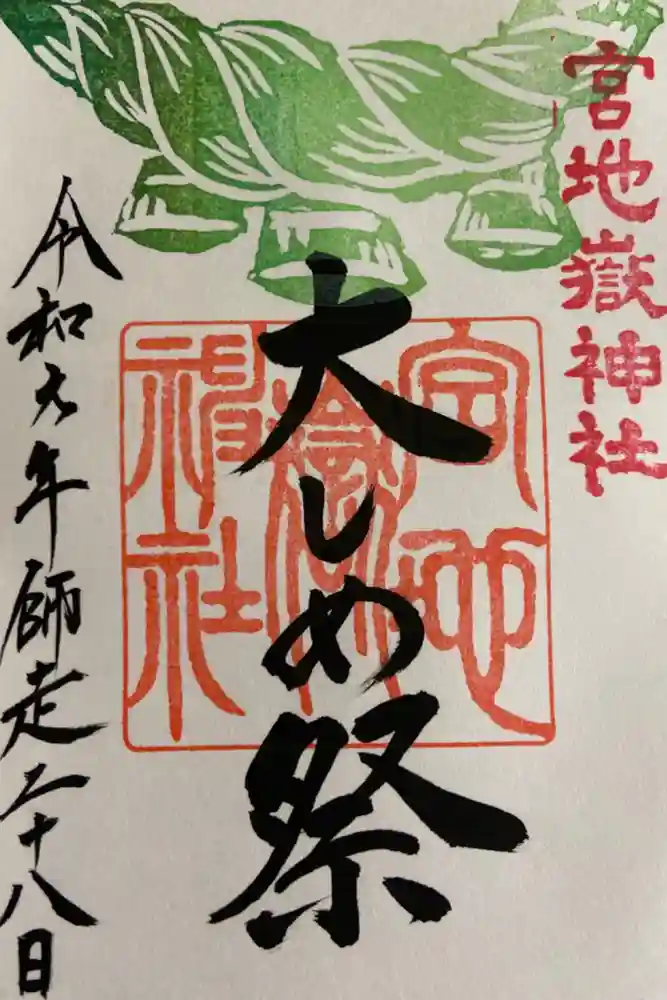 宮地嶽神社
大しめ祭
宮地嶽神社
令和元年師走二十八日